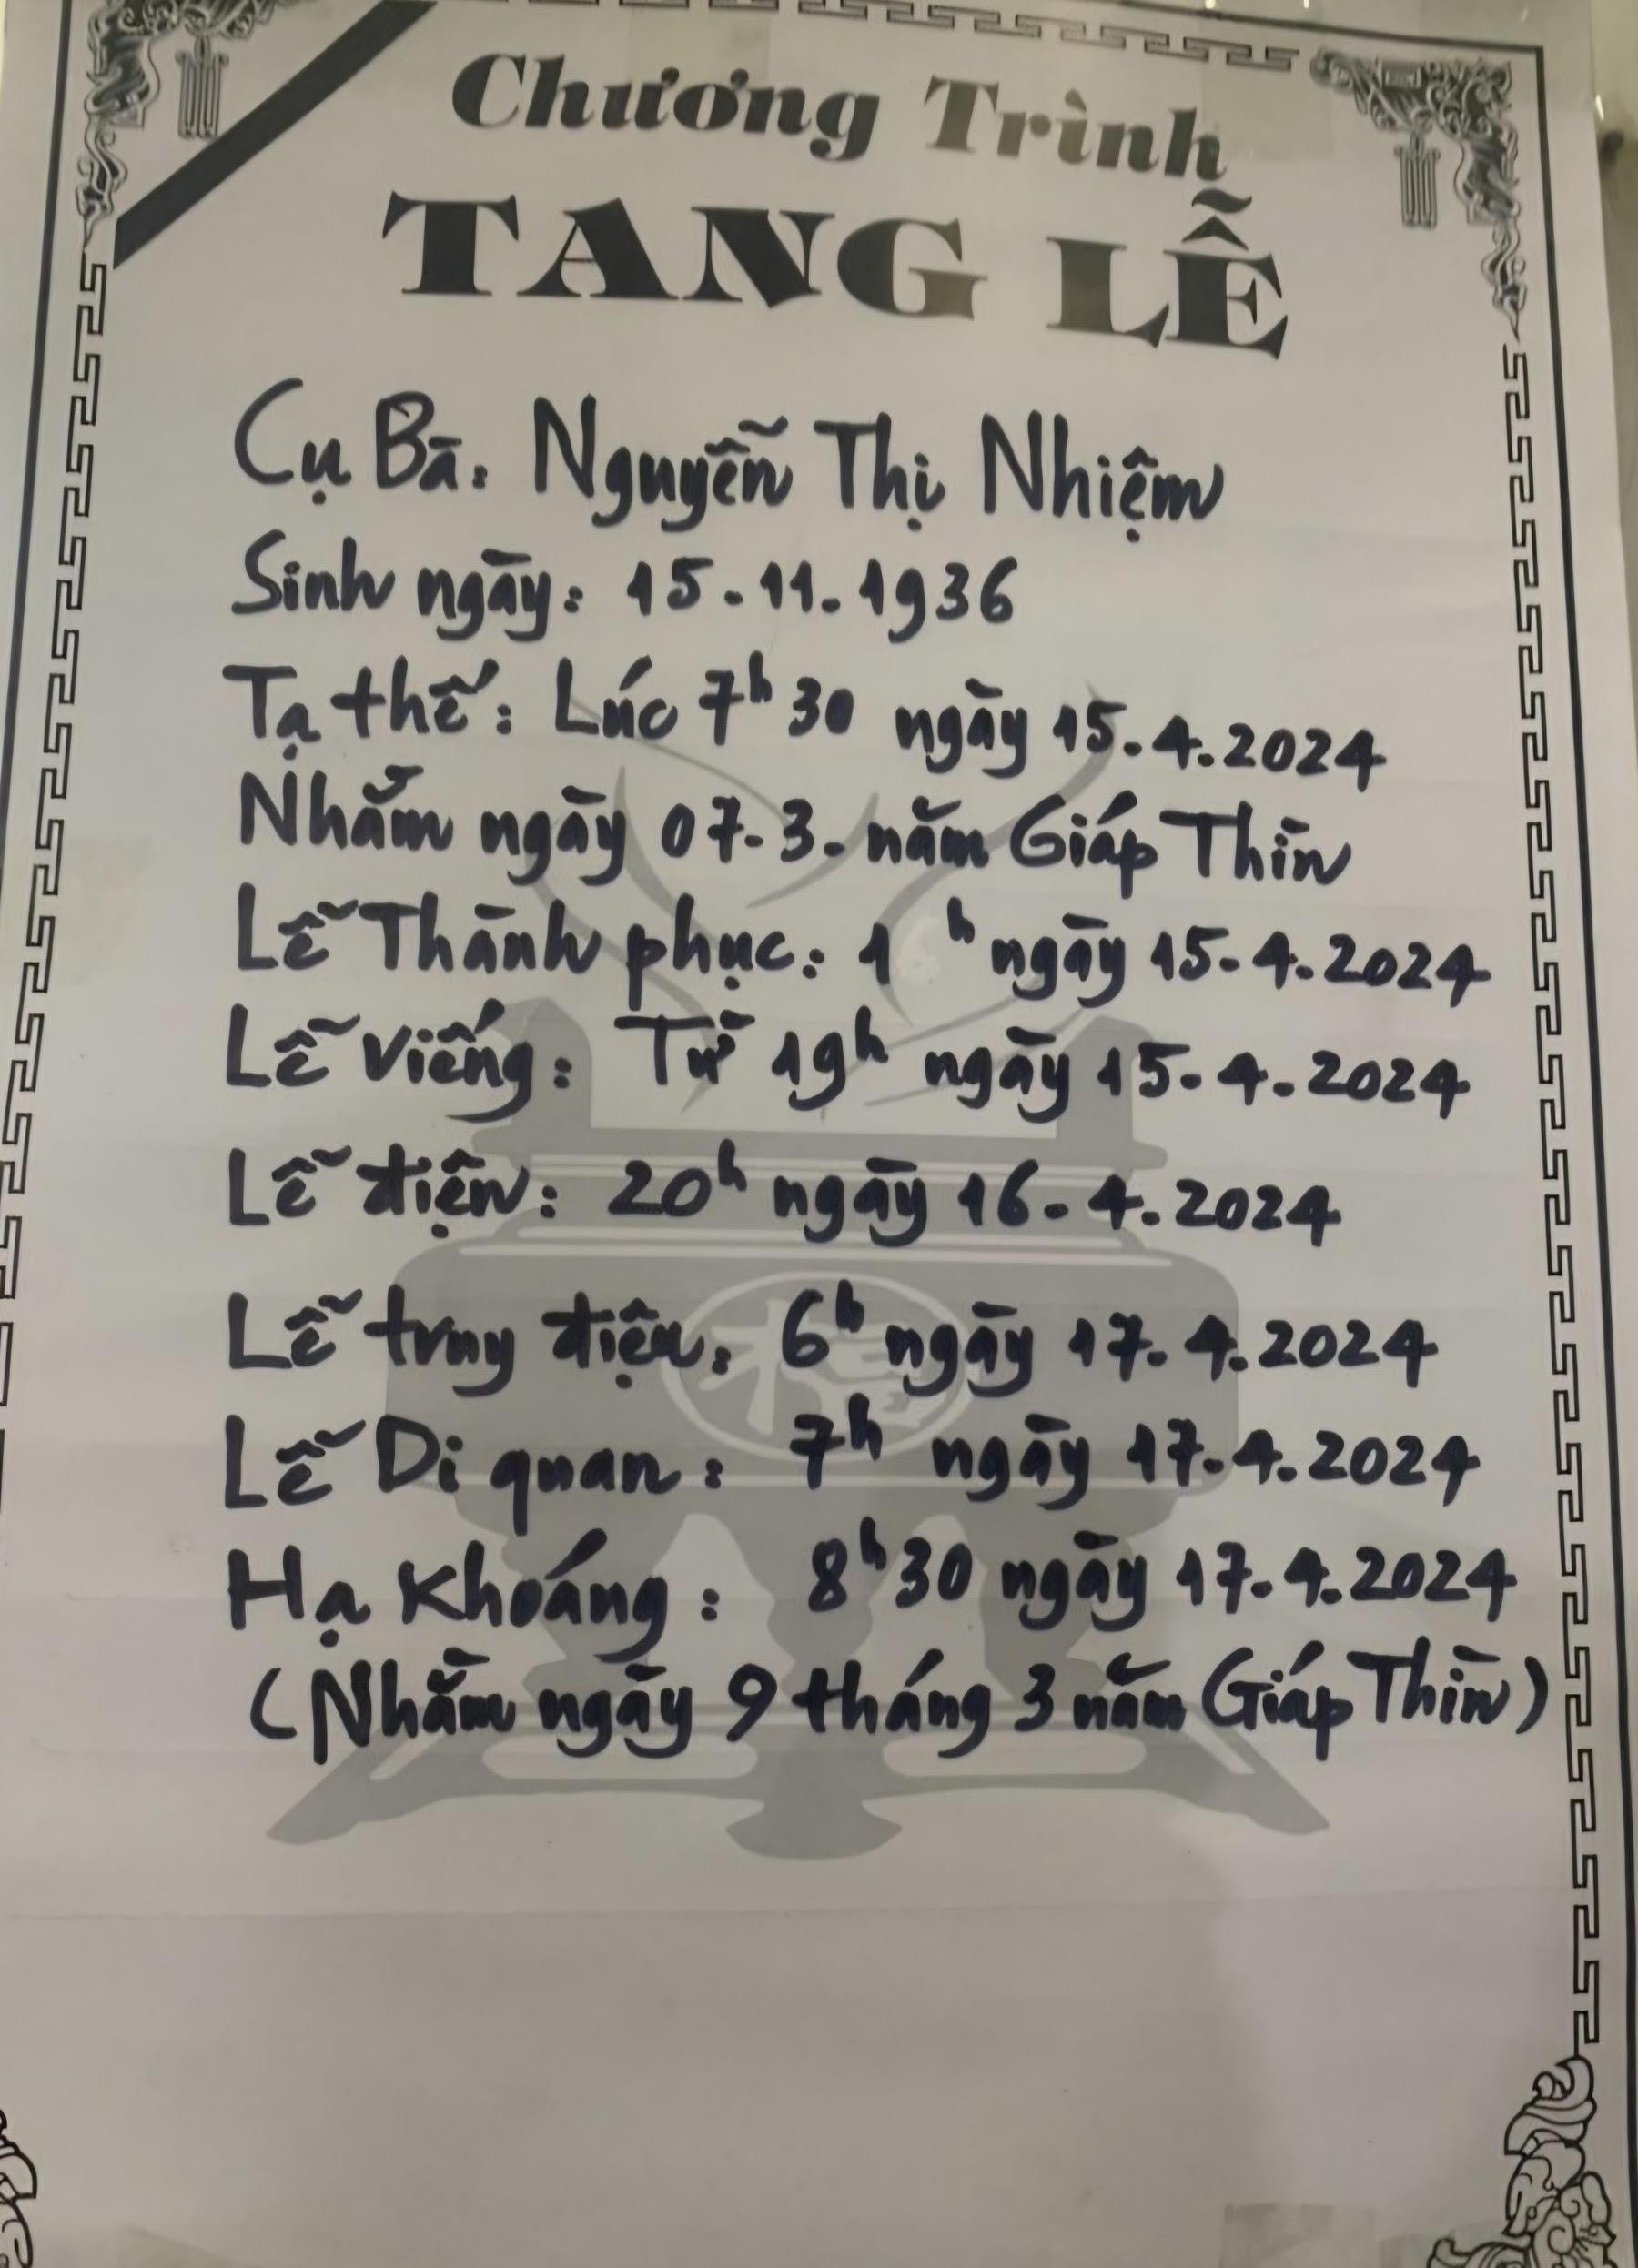 Chương Trình
TANG LỄ
Cụ Bà: Nguyễn Thị Nhiệm
Sinh ngày: 15.11.1936
Tạ thế: Lúc 7h30 ngày 15.4.2024
Nhằm ngày 07.3. năm Giáp Thìn
Lễ Thành phục: 1 h ngày 15.4.2024
Lễ viếng: Từ 19h ngày 15.4.2024
Lễ điện: 20h ngày 16.4.2024
Lễ truy điệu: 6h ngày 17.4.2024
Lễ Di quan: 7h ngày 17.4.2024
Hạ Khoáng: 8h30 ngày 17.4.2024
(Nhằm ngày 9 tháng 3 năm Giáp Thìn)